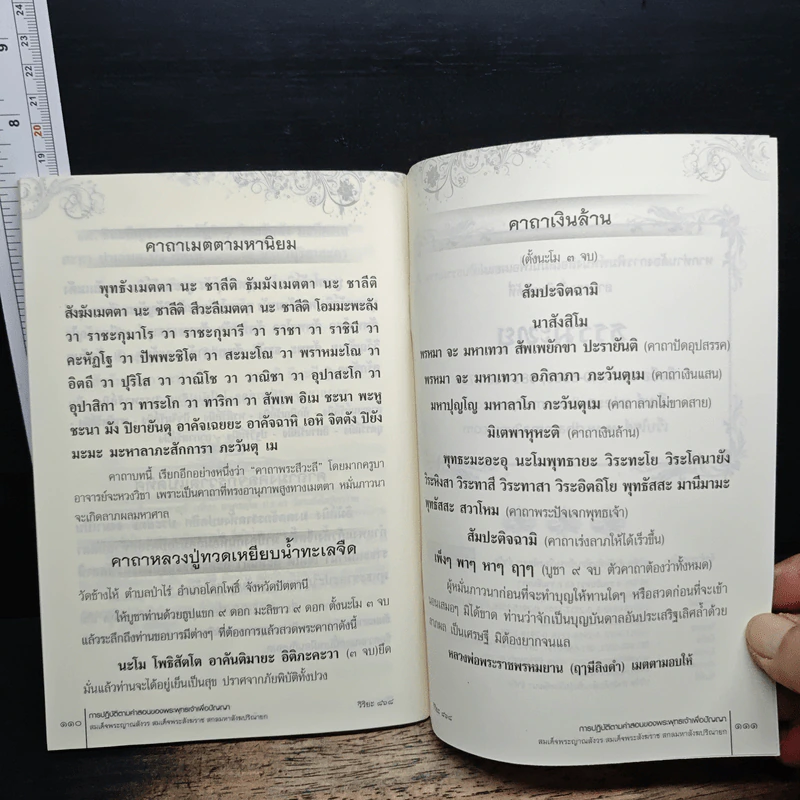 คาถาเมตตามหานิยม
พุทธังเมตตา นะ ชาลีติ ธัมมังเมตตา นะ ชาลีติ
สังฆังเมตตา นะ ชาลีติ สีวะลีเมตตา นะ ชาลีติ โอมมะพะลัง
วา ราชะกุมาโร วา ราชะกุมารี วา ราชา วา ราชินี วา
คะหัฏโฐ วา ปัพพะชิโต วา สะมะโณ วา พราหมะโณ วา
อิตถี วา ปุริโส วา วาณิโช วา วาณิชา วา อุปาสะโก วา
อุปาสิกา วา ทาระโก วา ทาริกา วา สัพเพ อิเม ชะนา พะหู
ชะนา มัง ปิยายันตุ อาคัจเฉยยะ อาคัจฉาหิ เอหิ จิตตัง ปิยัง
มะมะ มะหาลาภะสักการา ภะวันตุ เม
คาถาบทนี้ เรียกอีกอย่างหนึ่งว่า “คาถาพระสีวะลี” โดยมากครูบา
อาจารย์จะหวงวิชา เพราะเป็นคาถาที่ทรงอานุภาพสูงทางเมตตา หมั่นภาวนา
จะเกิดลาภผลมหาศาล
คาถาหลวงปู่ทวดเหยียบน้ำทะเลจืด
วัดช้างให้ ตำบลป่าไร่ อำเภอโคกโพธิ์ จังหวัดปัตตานี
ให้บูชาท่านด้วยธูปแขก ๙ ดอก มะลิขาว ๙ ดอก ตั้งนะโม ๓ จบ
แล้วระลึกถึงท่านขอบารมีต่างๆ ที่ต้องการแล้วสวดพระคาถาดังนี้
นะโม โพธิสัตโต อาคันติมายะ อิติภะคะวา (๓ จบ)ยึด
มั่นแล้วท่านจะได้อยู่เย็นเป็นสุข ปราศจากภัยพิบัติทั้งปวง
วิริยะ ๘๖๘
๑๑๐
การปฏิบัติตามคำสอนของพระพุทธเจ้าเพื่อปัญญา
สมเด็จพระญาณสังวร สมเด็จพระสังฆราช สกลมหาสังฆปริณายก
คาถาเงินล้าน
(ตั้งนะโม ๓ จบ)
สัมปะจิตฉามิ
นาสังสิโม
พรหมา จะ มหาเทวา สัพเพยักขา ปะรายันติ (คาถาปัดอุปสรรค)
พรหมา จะ มหาเทวา อภิลาภา ภะวันตุเม (คาถาเงินแสน)
มหาปุญโญ มหาลาโภ ภะวันตุเม (คาถาลาภไม่ขาดสาย)
มิเตพาหุหะติ (คาถาเงินล้าน)
พุทธะมะอะอุ นะโมพุทธายะ วิระทะโย วิระโคนายัง
วิระหิงสา วิระทาสี วิระทาสา วิระอิตถิโย พุทธัสสะ มานีมามะ
พุทธัสสะ สวาโหม (คาถาพระปัจเจกพุทธเจ้า)
สัมปะติจฉามิ (คาถาเร่งลาภให้ได้เร็วขึ้น)
เพ็งๆ พาๆ หาๆ ฤาๆ (บูชา ๙ จบ ตัวคาถาต้องว่าทั้งหมด)
ผู้หมั่นภาวนาก่อนที่จะทำบุญให้ทานใดๆ หรือสวดก่อนที่จะเข้า
นอนเสมอๆ มิได้ขาด ท่านว่าจักเป็นบุญบันดาลอันประเสริฐเลิศล้ำด้วย
ลาภผล เป็นเศรษฐี มิต้องยากจนแล
หลวงพ่อพระราชพรหมยาน (ฤๅษีลิงดำ) เมตตามอบให้
วิริยะ ๘๖๘
การปฏิบัติตามคำสอนของพระพุทธเจ้าเพื่อปัญญา
สมเด็จพระญาณสังวร สมเด็จพระสังฆราช สกลมหาสังฆปริณายก
๑๑๑
9
8
24
23
22
21
20
19